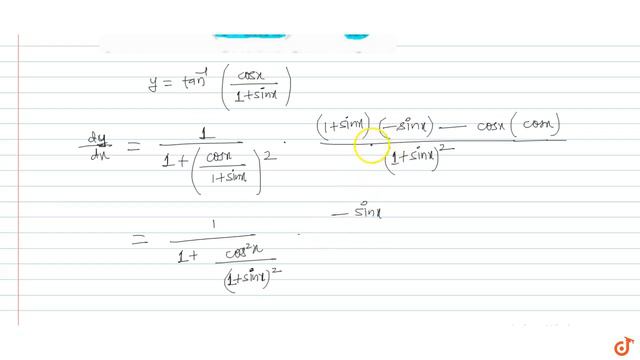 y = tan⁻¹ (cosx / 1+sinx)
dy/dx = 1 / 1+(cosx / 1+sinx)² · (1+sinx)(−sinx) — cosx(cosx) / (1+sinx)²
= 1 / 1+ cos²x / (1+sinx)² · − sinx